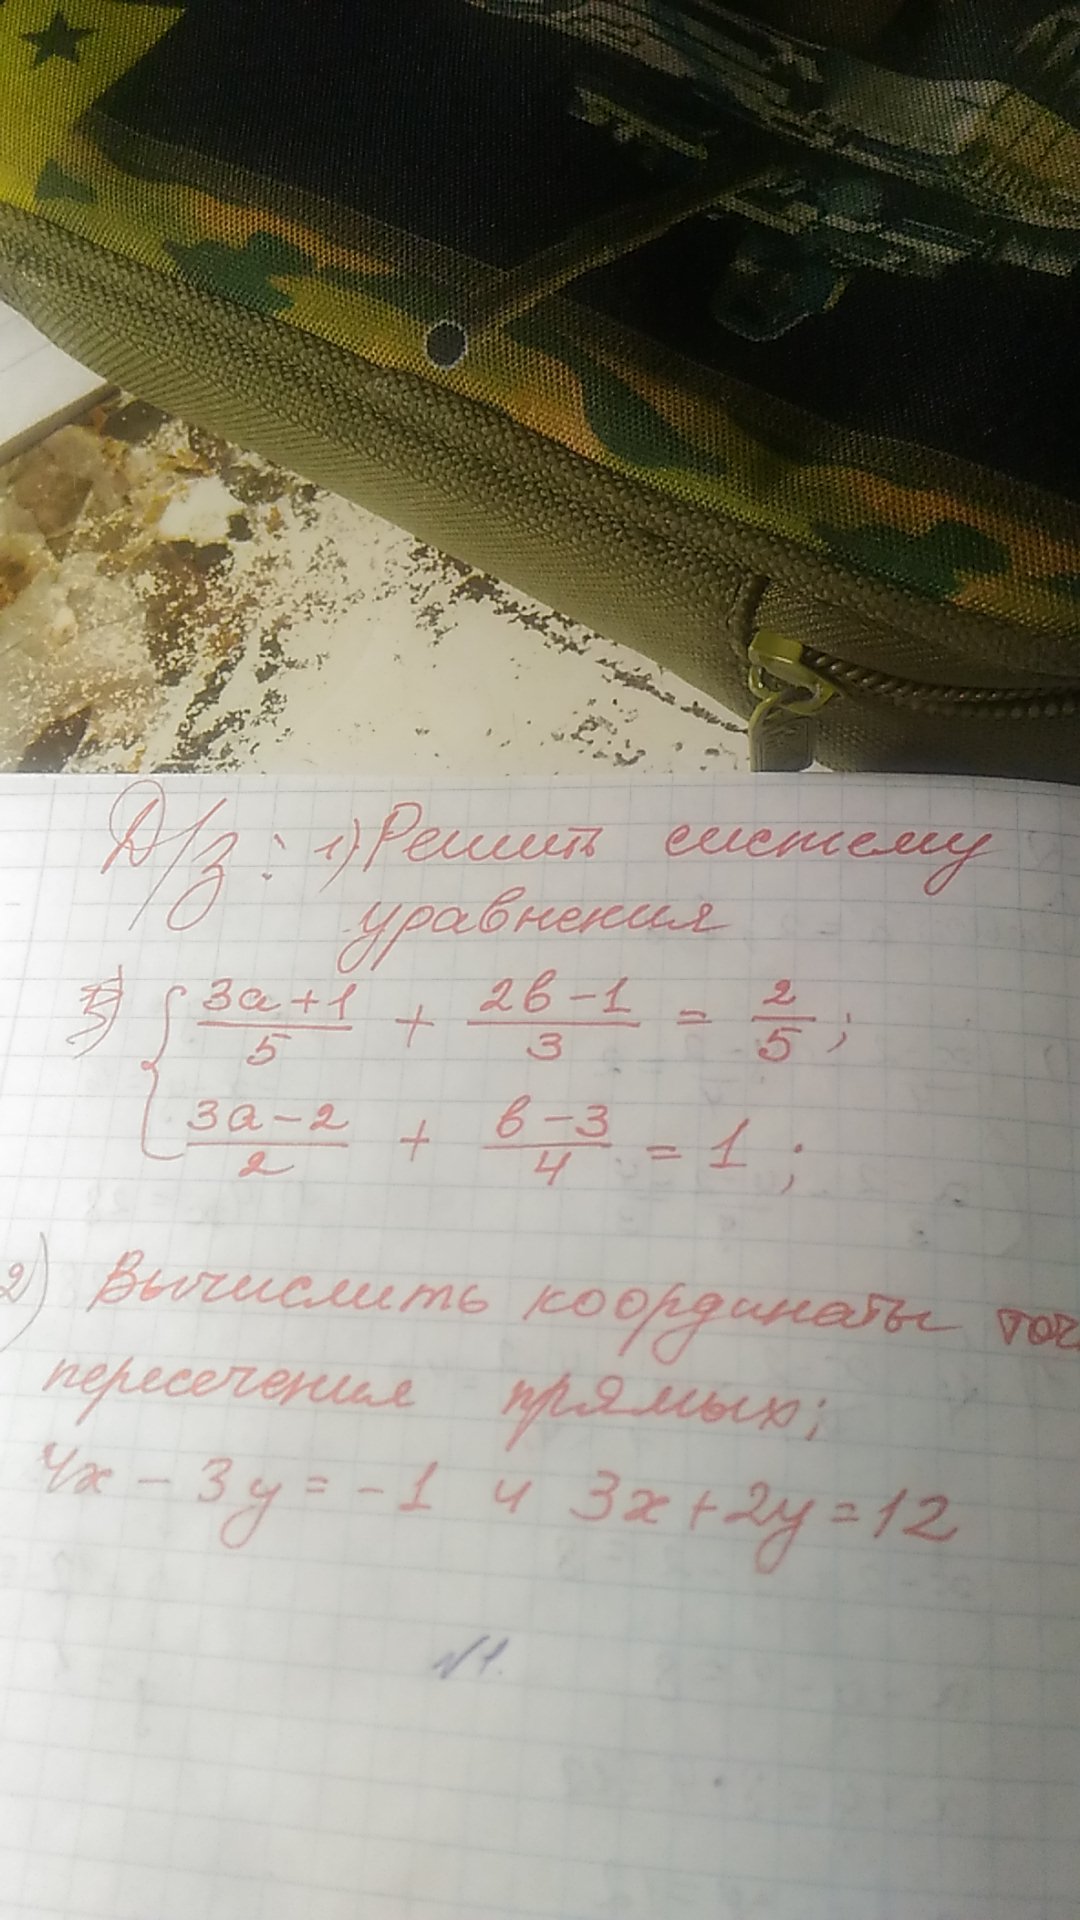 Д/з: 1) Решить систему
уравнения
{ 3а+1/5 + 2в-1/3 = 2/5;
3а-2/2 + в-3/4 = 1;
2) Вычислить координаты точ
пересечения прямых;
4х - 3у = -1 и 3х + 2у = 12
№1.